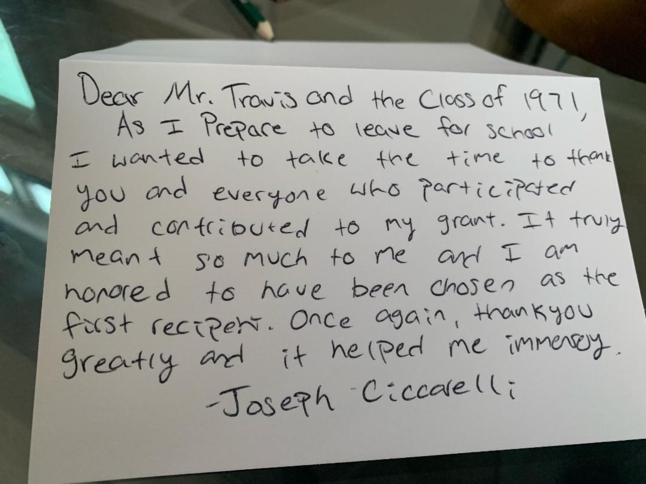 Dear Mr. Travis and the Class of 1971,
As I Prepare to leave for school
I wanted to take the time to thank
you and everyone who participated
and contributed to my grant. It truly
meant so much to me and I am
honored to have been chosen as the
first recipent. Once again, thankyou
greatly and it helped me immensy.
-Joseph Ciccarelli